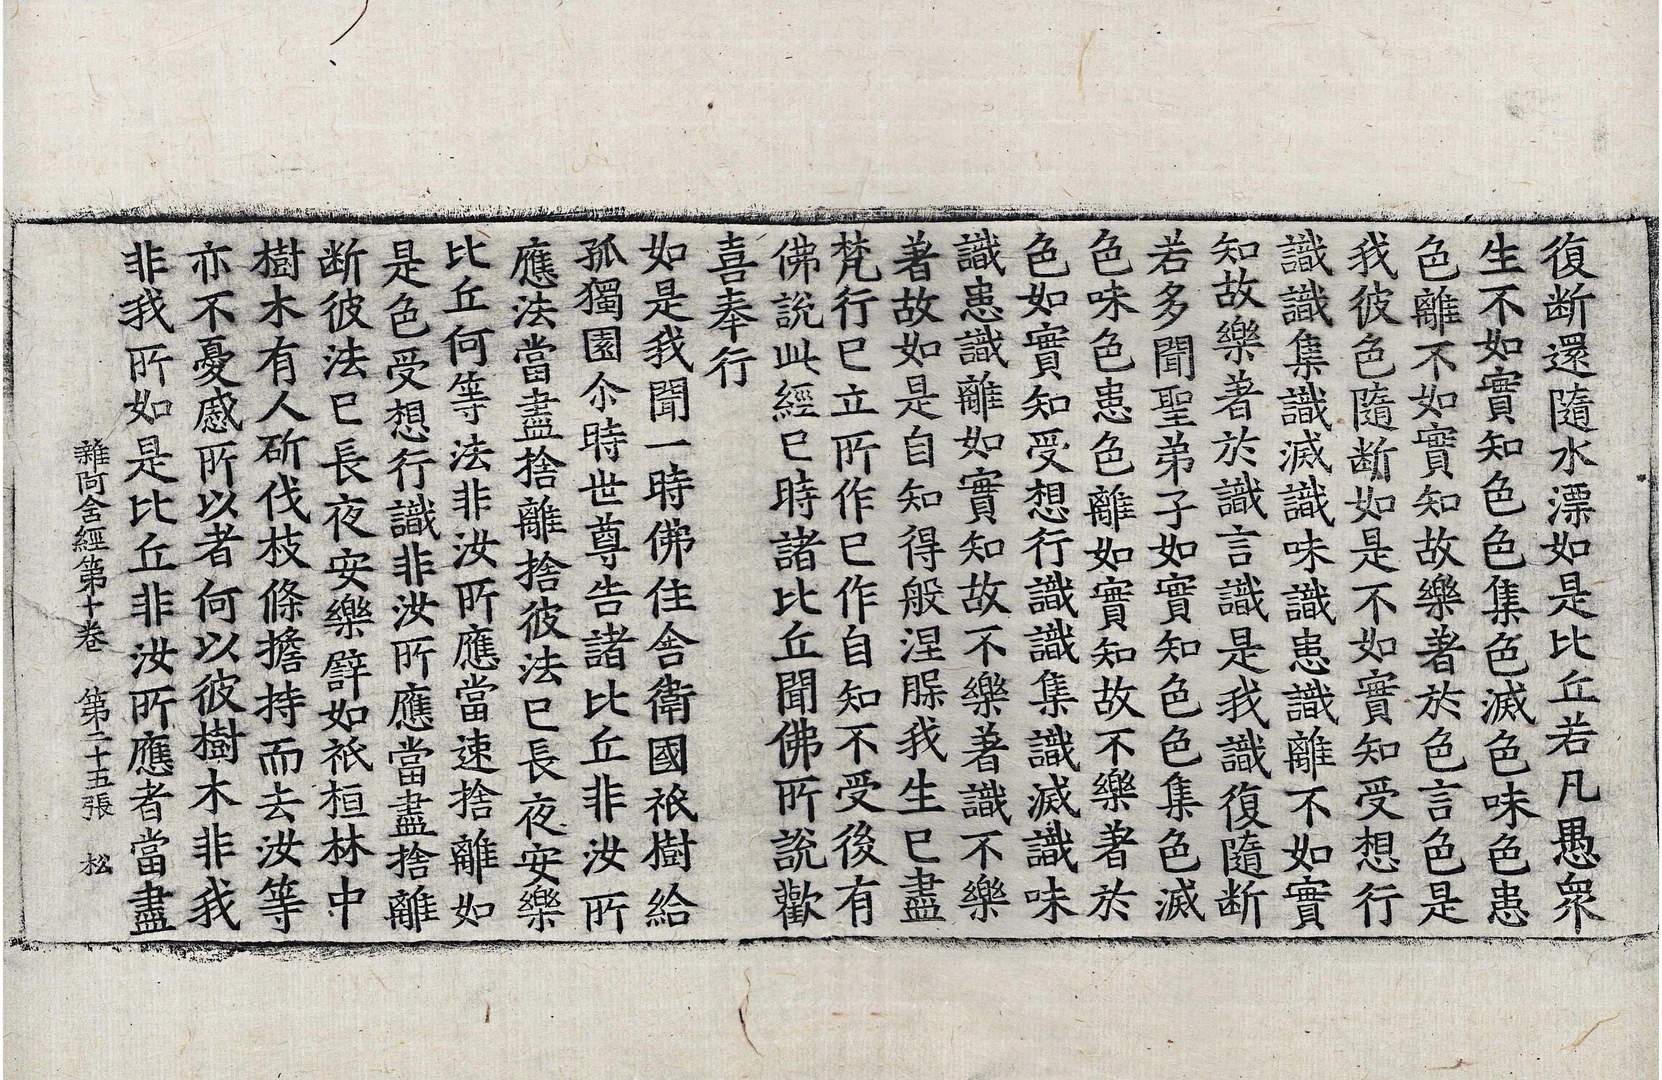 復断還隨水漂如是比丘若凡愚衆
生不如實知色色集色滅色味色患
色離不如實知故樂著於色言色是
我彼色隨断如是不如實知受想行
識識集識滅識味識患識離不如實
知故樂著於識言識是我識復隨断
若多聞聖弟子如實知色色集色滅
色味色患色離如實知故不樂著於
色如實知受想行識識集識滅識味
識患識離如實知故不樂著識不樂
著故如是自知得般涅槃我生已盡
梵行已立所作已作自知不受後有
佛說此經已時諸比丘聞佛所說歡
喜奉行
如是我聞一時佛住舍衛國祇樹給
孤獨園尒時世尊告諸比丘非汝所
應法當盡捨離捨彼法已長夜安樂
比丘何等法非汝所應當速捨離如
是色受想行識非汝所應當盡捨離
断彼法已長夜安樂譬如祇桓林中
樹木有人斫伐枝條擔持而去汝等
亦不憂慼所以者何以彼樹木非我
非我所如是比丘非汝所應者當盡
雜阿含經第十卷 第二十五張 松